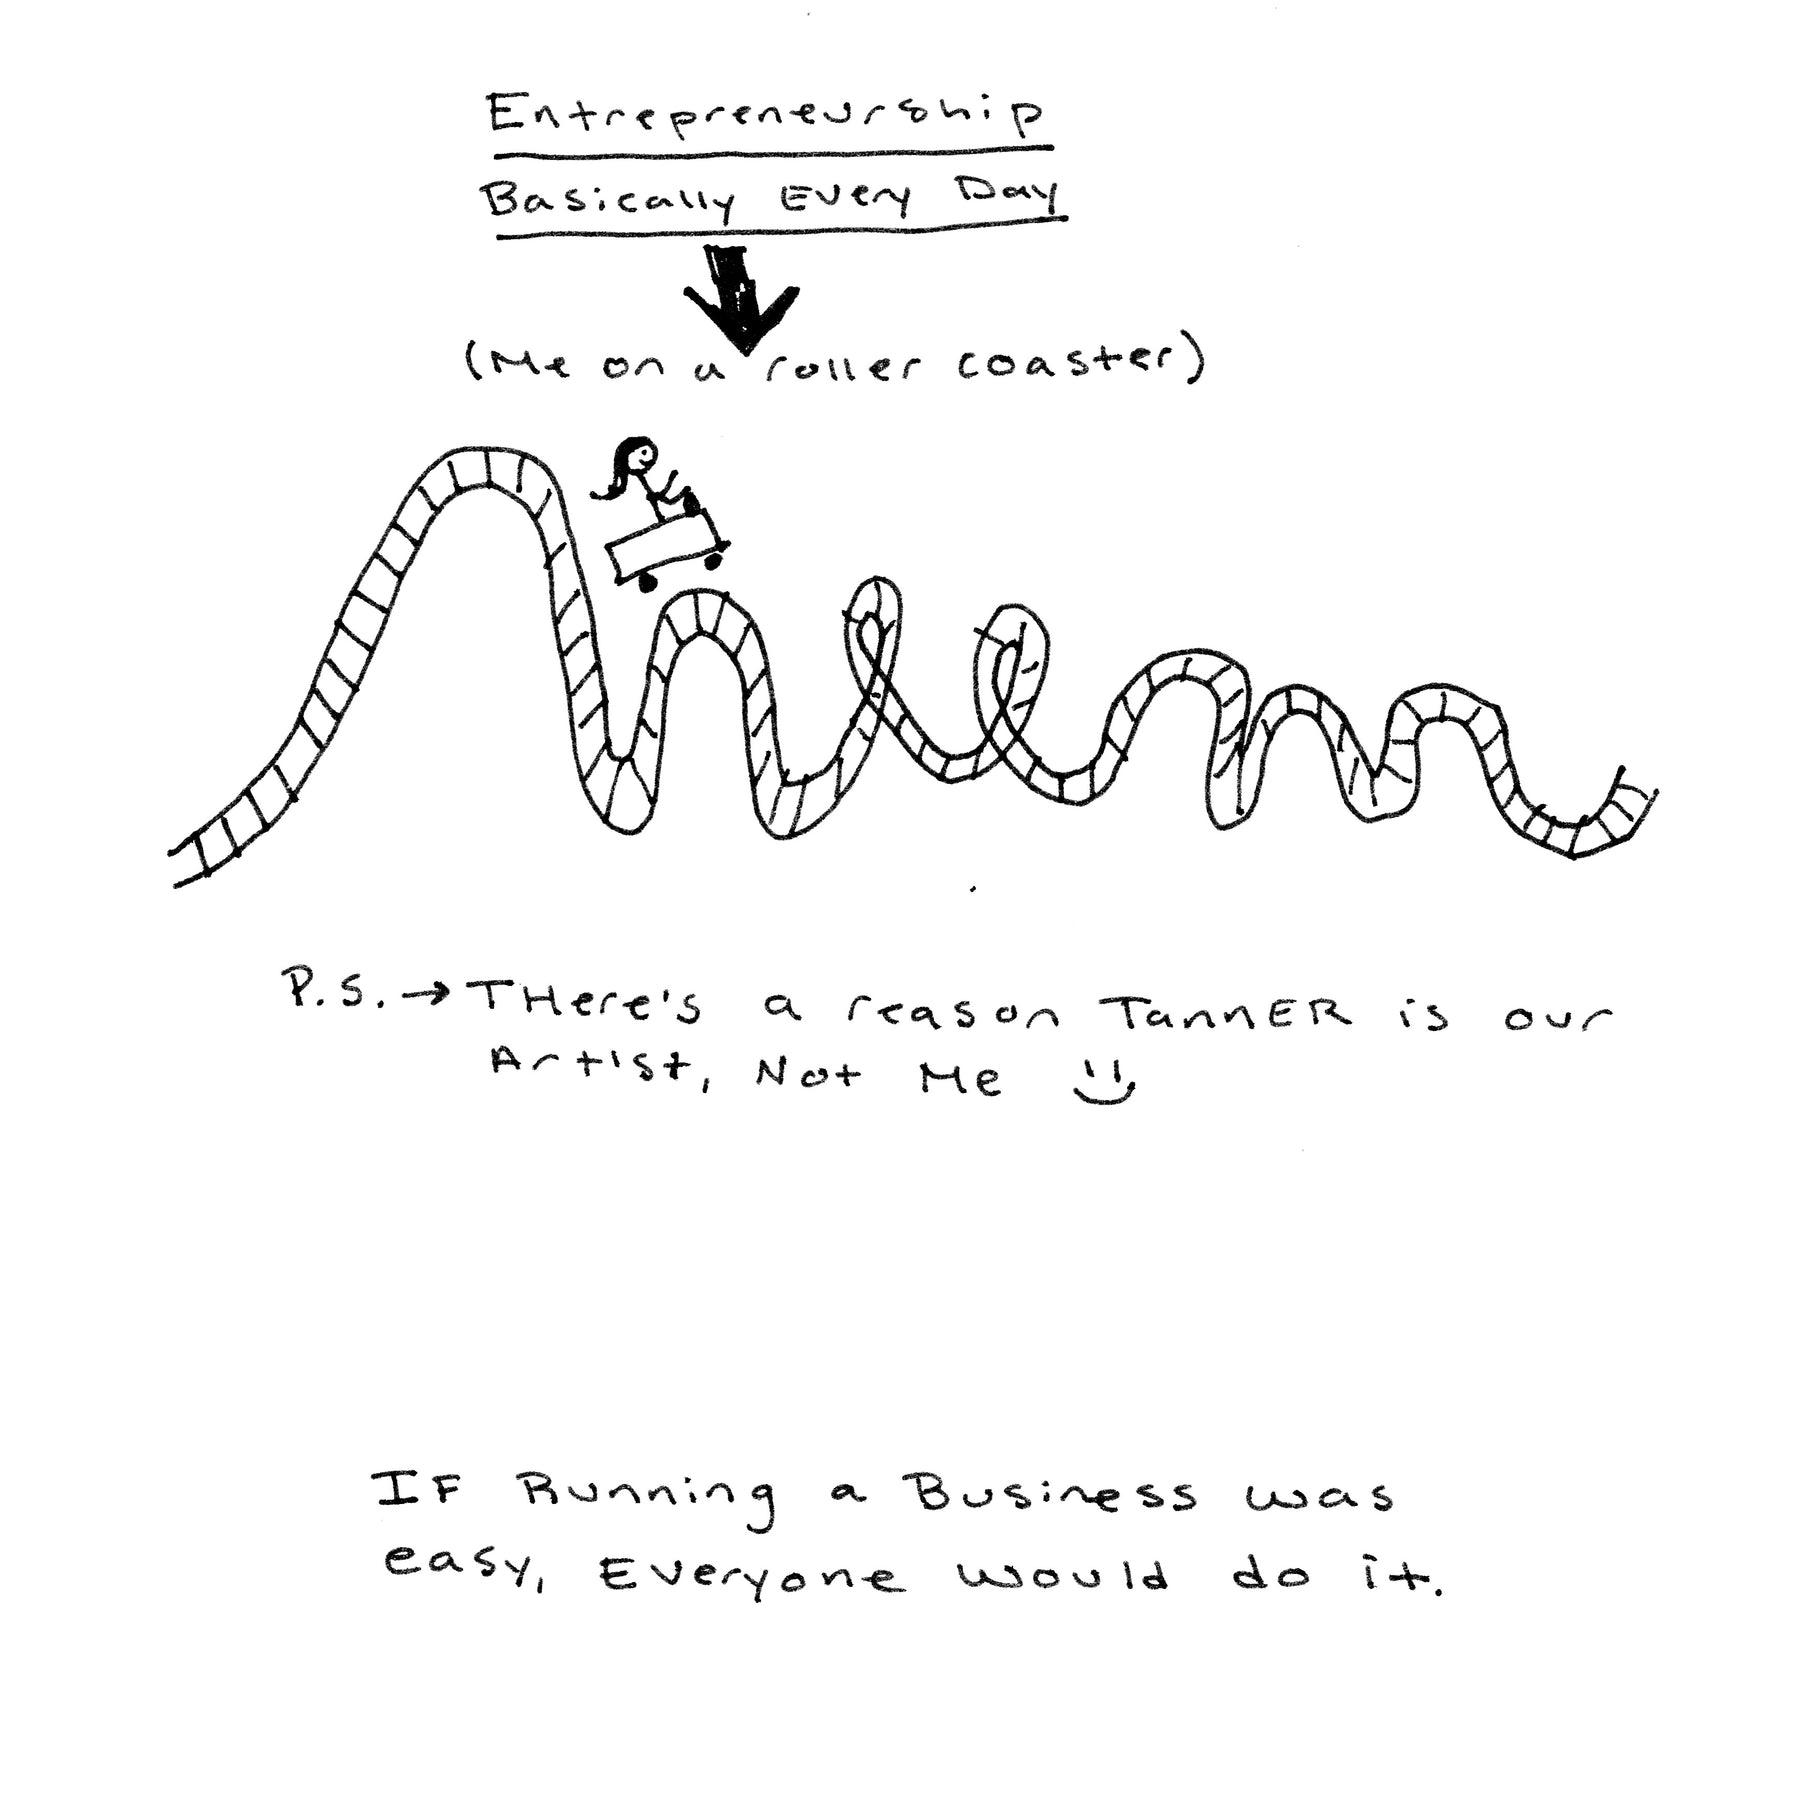 Entrepreneurship
Basically Every Day
(Me on a roller coaster)
P.S. → THere's a reason TannER is our
Artist, Not Me
IF Running a Business was
easy, Everyone would do it.